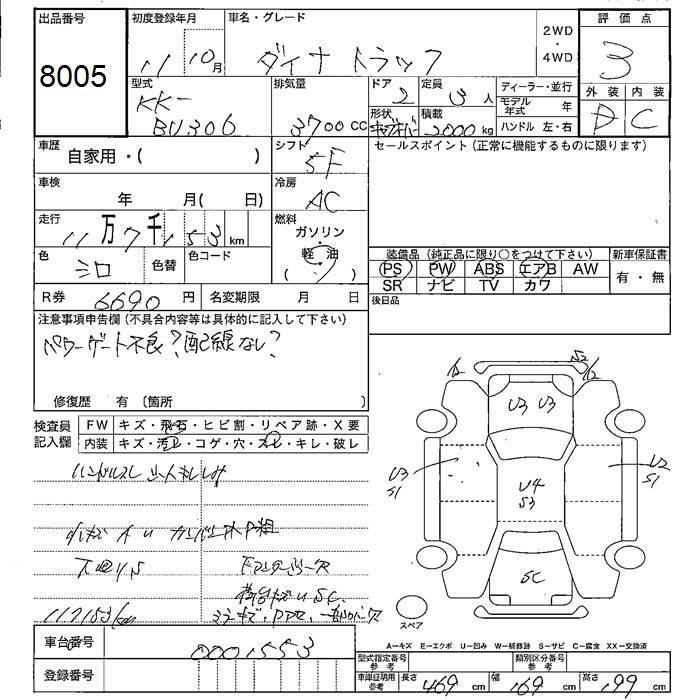 出品番号
8005
初度登録年月
11 10月
車名・グレード
ダイナ トラック
2WD
・
4WD
評価点
3
外装 内装
D C
型式
KK-
BU306
排気量
3700 CC
ドア
2
定員
3 人
形状
積載
2000 kg
ディーラー・並行
モデル年式 年
ハンドル 左・右
車歴
自家用・( )
シフト
5F
セールスポイント(正常に機能するものに限ります)
車検
年 月( 日)
冷房
AC
走行
11万7千153 km
燃料
ガソリン
・
(軽油)
色
シロ
色替
色コード
装備品(純正品に限り○をつけて下さい)
PS PW ABS エアB AW
SR ナビ TV カワ
新車保証書
有・無
R券 6690 円
名変期限 月 日
後日品
注意事項申告欄(不具合内容等は具体的に記入して下さい)
パワーゲート不良? 配線なし?
修復歴 有 〔箇所 〕
検査員
記入欄
FW キズ・飛石・ヒビ割・リペア跡・X要
内装 キズ・汚レ・コゲ・穴・スレ・キレ・破レ
ハンドルスレ
117153km
S2
U3 U3
U3
S1
U4
S3
U2
S1
SC
スペア
A-キズ E-エクボ U-凹み W-補修跡 S-サビ C-腐食 XX-交換済
車台番号
0001553
登録番号
型式指定番号
参考
類別区分番号
参考
車庫証明用
参考
長さ 469 cm 幅 169 cm 高さ 199 cm